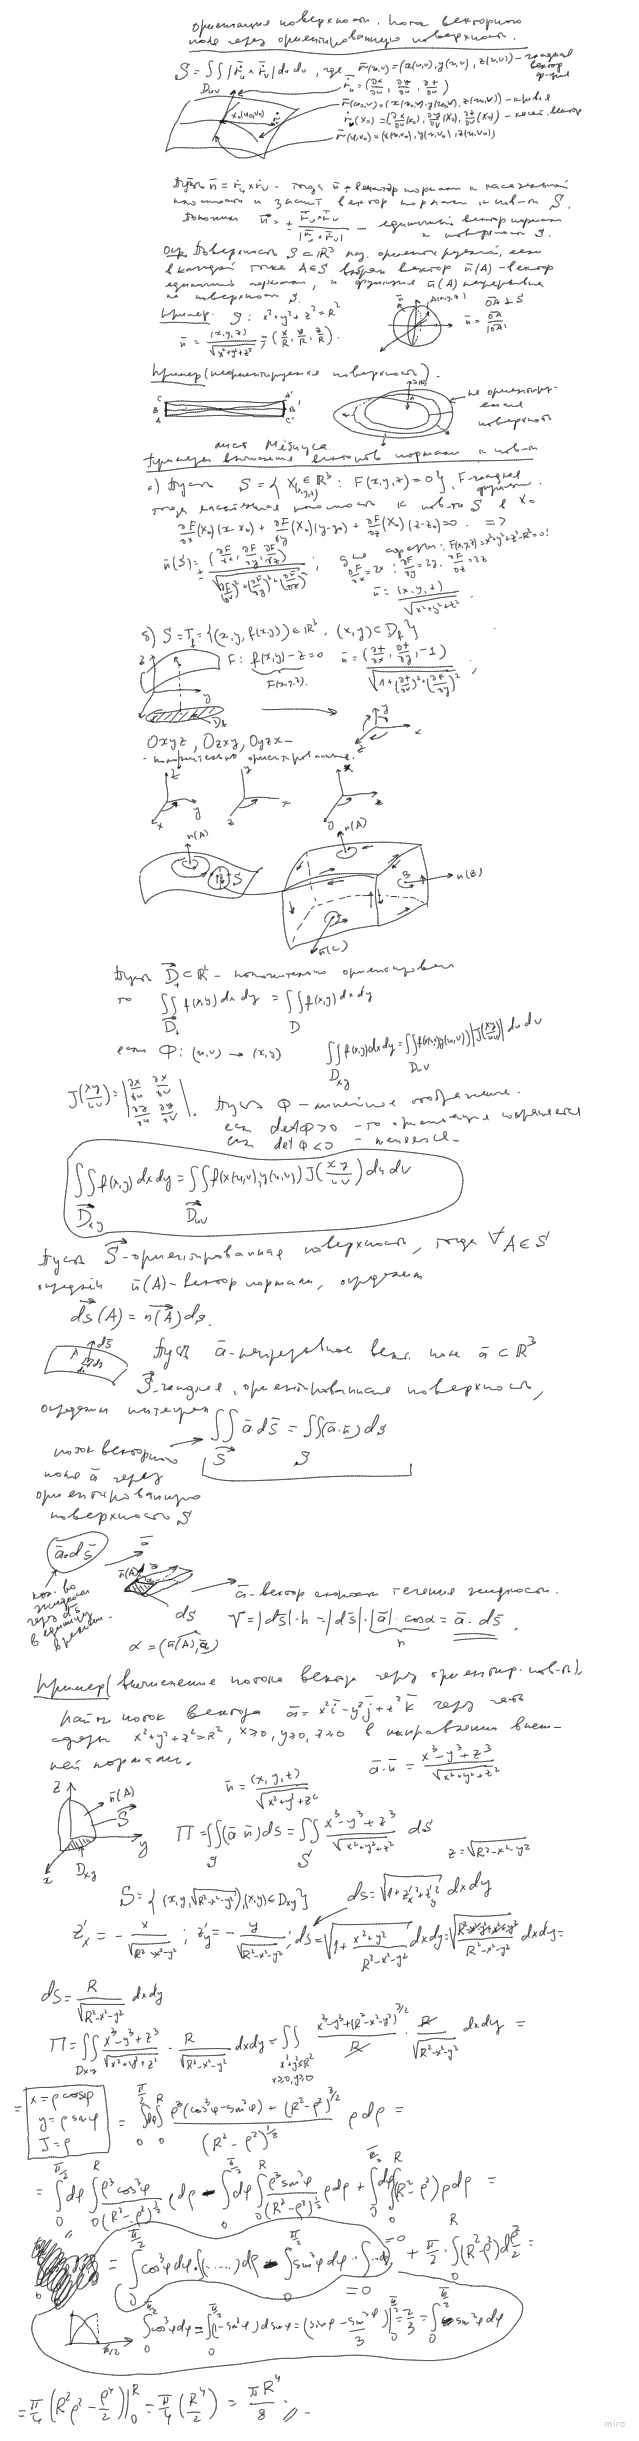 Ориентация поверхности. Поток векторного
поля через ориентированную поверхность.
S = ∬ |r̄ᵤ × r̄ᵥ| du dv, где r̄(u,v) = (x(u,v), y(u,v), z(u,v)) - гладкая
Duv
вектор
ф-ция
r̄ᵤ = (∂x/∂u, ∂y/∂u, ∂z/∂u)
r̄(u₀,v) = (x(u₀,v), y(u₀,v), z(u₀,v)) - кривая
r̄ᵥ(X₀) = (∂x/∂v(X₀), ∂y/∂v(X₀), ∂z/∂v(X₀)) - касат. вектор
r̄(u,v₀) = (x(u,v₀), y(u,v₀), z(u,v₀))
X₀(u₀,v₀)
Пусть n̄ = r̄ᵤ × r̄ᵥ - тогда n̄ - вектор нормали к касательной
плоскости и значит вектор нормали к пов-ти S.
n̄ = ± r̄ᵤ×r̄ᵥ / |r̄ᵤ×r̄ᵥ| - единичный вектор нормали
к поверхности S.
Опр. Поверхность S ⊂ ℝ³ наз. ориентируемой, если
в каждой точке A∈S выбран вектор n̄(A) - вектор
единичной нормали, и функция n̄(A) непрерывна
на поверхности S.
Пример. S: x²+y²+z²=R²
n̄ = (x,y,z)/√(x²+y²+z²) = (x/R, y/R, z/R).
n̄ A(x,y,z) OA ⊥ S
n̄ = OA/|OA|
Пример (неориентируемая поверхность).
C A'
B B'
A C'
n̄(A)
A
не ориентиру-
емая
поверхность
лист Мёбиуса.
Примеры вычисления векторов нормали к пов-ти
а) Пусть S = {X(x,y,z) ∈ ℝ³ : F(x,y,z) = 0}, F - гладкая
функция
тогда касательная плоскость к пов-ти S в X₀
∂F/∂x(X₀)(x-x₀) + ∂F/∂y(X₀)(y-y₀) + ∂F/∂z(X₀)(z-z₀) = 0. =>
n̄(S) = ± (∂F/∂x, ∂F/∂y, ∂F/∂z) / √((∂F/∂x)²+(∂F/∂y)²+(∂F/∂z)²) ; для сферы: F(x,y,z) = x²+y²+z²-R²=0!
∂F/∂x = 2x; ∂F/∂y = 2y, ∂F/∂z = 2z
n̄ = (x,y,z)/√(x²+y²+z²).
б) S = Γf = {(x,y,f(x,y)) ∈ ℝ³, (x,y) ⊂ Df}
F: f(x,y) - z = 0 n̄ = (∂f/∂x, ∂f/∂y, -1) / √(1+(∂f/∂x)²+(∂f/∂y)²) ;
F(x,y,z).
z
y
Df
y
x
z
Oxyz, Ozxy, Oyzx -
- положительно ориентированные.
z y x
x y z x
n(A)
S
n(A)
B
n(B)
n(C)
Пусть D⃗₊ ⊂ ℝ² - положительно ориентирован
то ∬ f(x,y) dx dy = ∬ f(x,y) dx dy
D⃗₊ D
если Φ: (u,v) → (x,y) ∬ f(x,y) dx dy = ∬ f(x(u,v),y(u,v)) |J(xy/uv)| du dv
Dxy Duv
J(xy/uv) = |∂x/∂u ∂x/∂v
∂y/∂u ∂y/∂v|. Пусть Φ - линейное отображение.
если det Φ > 0 - то ориентация сохраняется
если det Φ < 0 - меняется.
∬ f(x,y) dx dy = ∬ f(x(u,v),y(u,v)) J(xy/uv) du dv
D⃗xy D⃗uv
Пусть S⃗ - ориентированная поверхность, тогда ∀A∈S
определён n̄(A) - вектор нормали, определим
ds⃗(A) = n⃗(A) ds.
A ds̄
ds
Пусть ā - непрерывное век. поле ā ⊂ ℝ³
S⃗ - гладкая, ориентированная поверхность,
определим интеграл
∬ ā ds̄ = ∬ (ā·n̄) ds
S⃗ S
поток векторного
поля ā через
ориентированную
поверхность S
ā·ds̄
ā
n̄(A)
кол-во
жидкости
через ds
в единицу
времени.
ds
ā - вектор скорости течения жидкости.
V = |ds̄|·h = |ds̄|·|ā|·cosα = ā·ds̄.
h
α = (n̄(A), ā)
Пример (вычисление потока вектора через ориентир. пов-ть).
Найти поток вектора ā = x²ī - y²j̄ + z²k̄ через часть
сферы x²+y²+z²=R², x≥0, y≥0, z≥0 в направлении внеш-
ней нормали.
n̄ = (x,y,z)/√(x²+y²+z²) ā·n̄ = (x³-y³+z³)/√(x²+y²+z²)
z
n̄(A)
S⃗
y
x
Dxy
Π = ∬ (ā·n̄) ds = ∬ (x³-y³+z³)/√(x²+y²+z²) ds
S S
z = √(R²-x²-y²)
S = {(x,y,√(R²-x²-y²)), (x,y) ∈ Dxy} ds = √(1+z'ₓ²+z'ᵧ²) dx dy
z'ₓ = - x/√(R²-x²-y²) ; z'ᵧ = - y/√(R²-x²-y²) ; ds = √(1 + (x²+y²)/(R²-x²-y²)) dx dy = √((R²-x²-y²+x²+y²)/(R²-x²-y²)) dx dy =
ds = R/√(R²-x²-y²) dx dy
Π = ∬ (x³-y³+z³)/√(x²+y²+z²) · R/√(R²-x²-y²) dx dy = ∬ (x³-y³+(R²-x²-y²)^(3/2))/R · R/√(R²-x²-y²) dx dy =
Dxy x²+y²≤R²
x≥0, y≥0
= x = ρcosφ
y = ρsinφ
J = ρ
= ∫₀^(π/2) dφ ∫₀^R (ρ³(cos³φ - sin³φ) + (R²-ρ²)^(3/2)) / (R²-ρ²)^(1/2) ρ dρ =
= ∫₀^(π/2) dφ ∫₀^R ρ³cos³φ/(R²-ρ²)^(1/2) ρ dρ - ∫₀^(π/2) dφ ∫₀^R ρ³sin³φ/(R²-ρ²)^(1/2) ρ dρ + ∫₀^(π/2) dφ ∫₀^R (R²-ρ²) ρ dρ =
= ∫₀^(π/2) cos³φ dφ · ∫(......) dρ - ∫₀^(π/2) sin³φ dφ · ∫... dρ + π/2 · ∫₀^R (R²-ρ²) dρ²/2 =
=0
=0
π/2
∫₀^(π/2) cos³φ dφ = ∫₀^(π/2) (1-sin²φ) d sinφ = (sinφ - sin³φ/3)|₀^(π/2) = 2/3 = ∫₀^(π/2) sin³φ dφ
= π/4 (R²ρ² - ρ⁴/2)|₀^R = π/4 (R⁴/2) = πR⁴/8.
miro